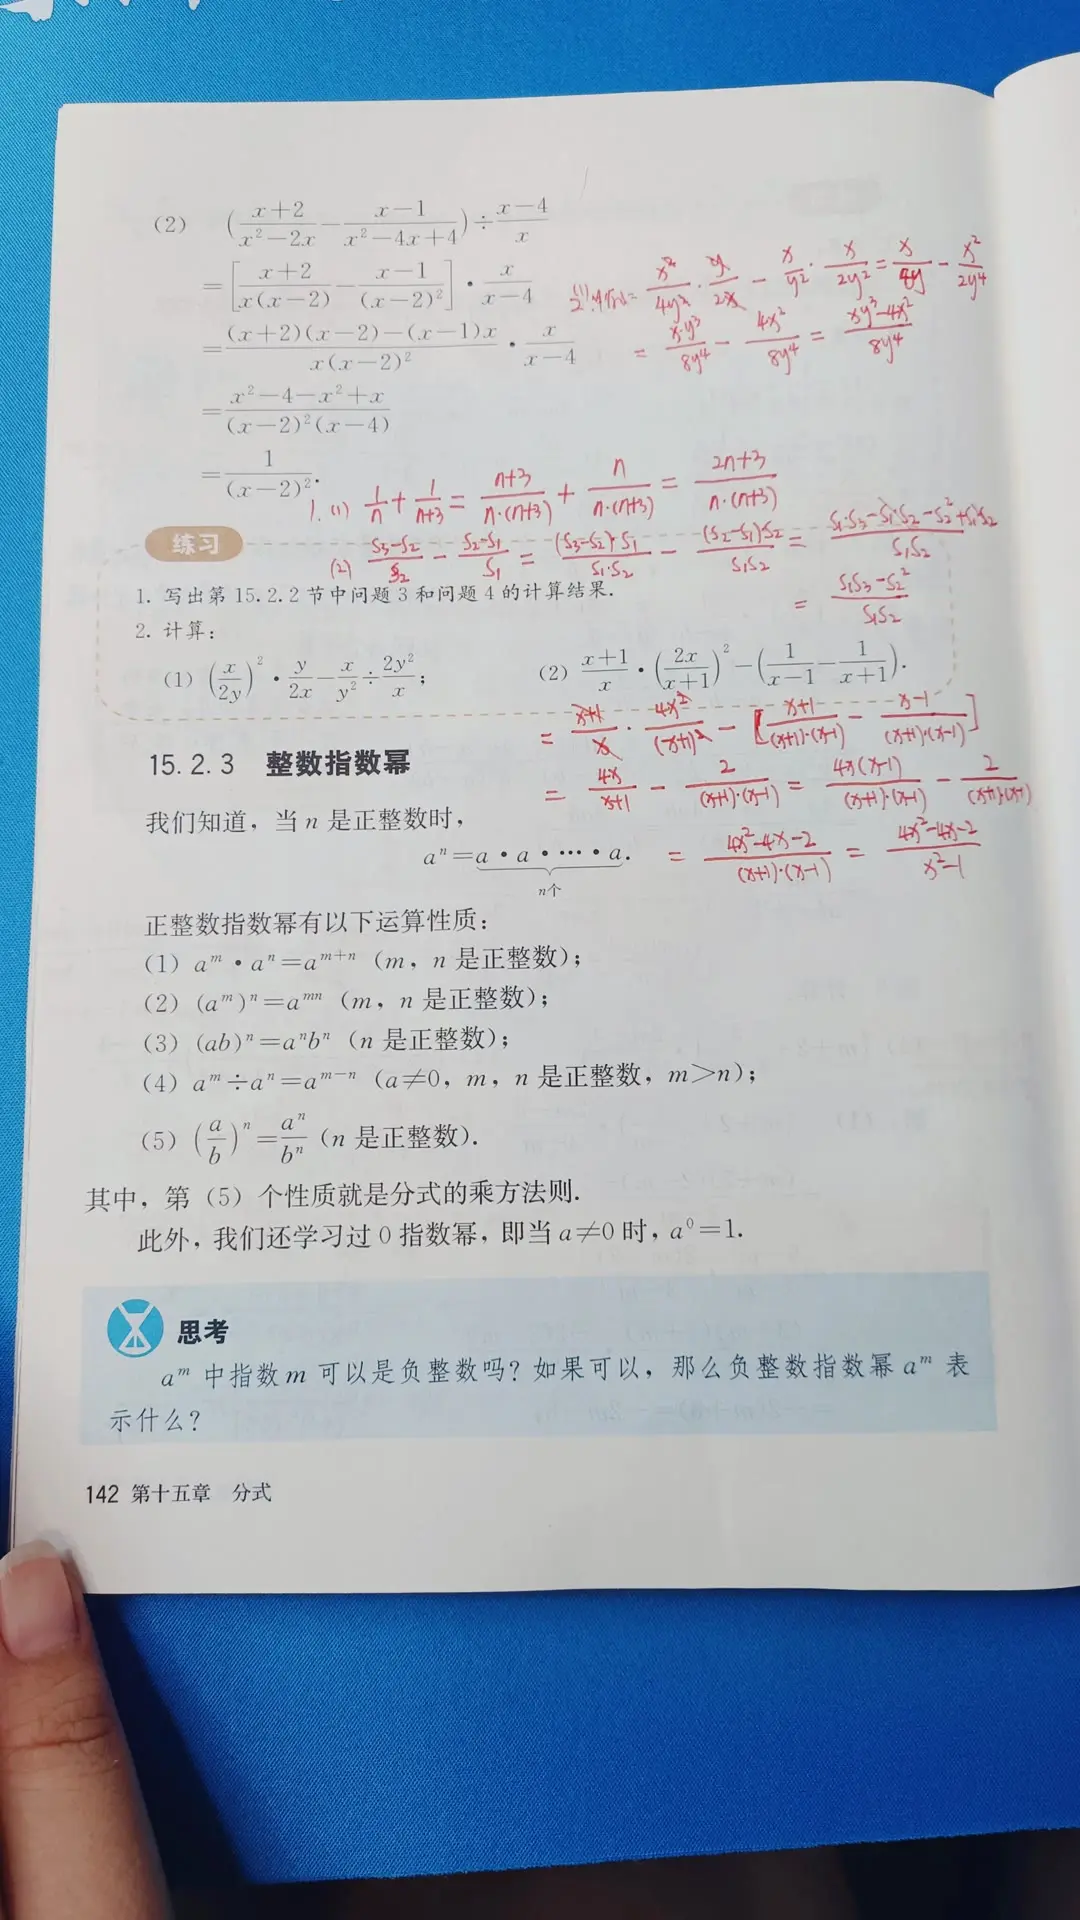 (2) (x+2/x²−2x − x−1/x²−4x+4) ÷ x−4/x
=[x+2/x(x−2) − x−1/(x−2)²] · x/x−4
=(x+2)(x−2)−(x−1)x/x(x−2)² · x/x−4
=x²−4−x²+x/(x−2)²(x−4)
=1/(x−2)².
= x²/4y² · y/2x − x/y² · x/2y² = x/8y − x²/2y⁴
= xy³/8y⁴ − 4x²/8y⁴ = xy³−4x²/8y⁴
1. (1) 1/n + 1/n+3 = n+3/n·(n+3) + n/n·(n+3) = 2n+3/n·(n+3)
(2) S₃−S₂/S₂ − S₂−S₁/S₁ = (S₃−S₂)·S₁/S₁·S₂ − (S₂−S₁)S₂/S₁S₂ = S₁·S₃−S₁·S₂−S₂²+S₁S₂/S₁S₂
= S₁S₃−S₂²/S₁S₂
练习
1. 写出第 15.2.2 节中问题 3 和问题 4 的计算结果.
2. 计算:
(1) (x/2y)² · y/2x − x/y² ÷ 2y²/x; (2) x+1/x · (2x/x+1)² − (1/x−1 − 1/x+1).
= x+1/x · 4x²/(x+1)² − [x+1/(x+1)·(x−1) − x−1/(x+1)·(x−1)]
= 4x/x+1 − 2/(x+1)·(x−1) = 4x(x−1)/(x+1)·(x−1) − 2/(x+1)·(x−1)
= 4x²−4x−2/(x+1)·(x−1) = 4x²−4x−2/x²−1
15.2.3 整数指数幂
我们知道，当 n 是正整数时，
aⁿ=a·a·…·a.
n个
正整数指数幂有以下运算性质：
(1) aᵐ·aⁿ=aᵐ⁺ⁿ（m，n 是正整数）；
(2) (aᵐ)ⁿ=aᵐⁿ（m，n 是正整数）；
(3) (ab)ⁿ=aⁿbⁿ（n 是正整数）；
(4) aᵐ÷aⁿ=aᵐ⁻ⁿ（a≠0，m，n 是正整数，m>n）；
(5) (a/b)ⁿ=aⁿ/bⁿ（n 是正整数）.
其中，第（5）个性质就是分式的乘方法则.
此外，我们还学习过 0 指数幂，即当 a≠0 时，a⁰=1.
思考
aᵐ 中指数 m 可以是负整数吗？如果可以，那么负整数指数幂 aᵐ 表
示什么？
142 第十五章 分式